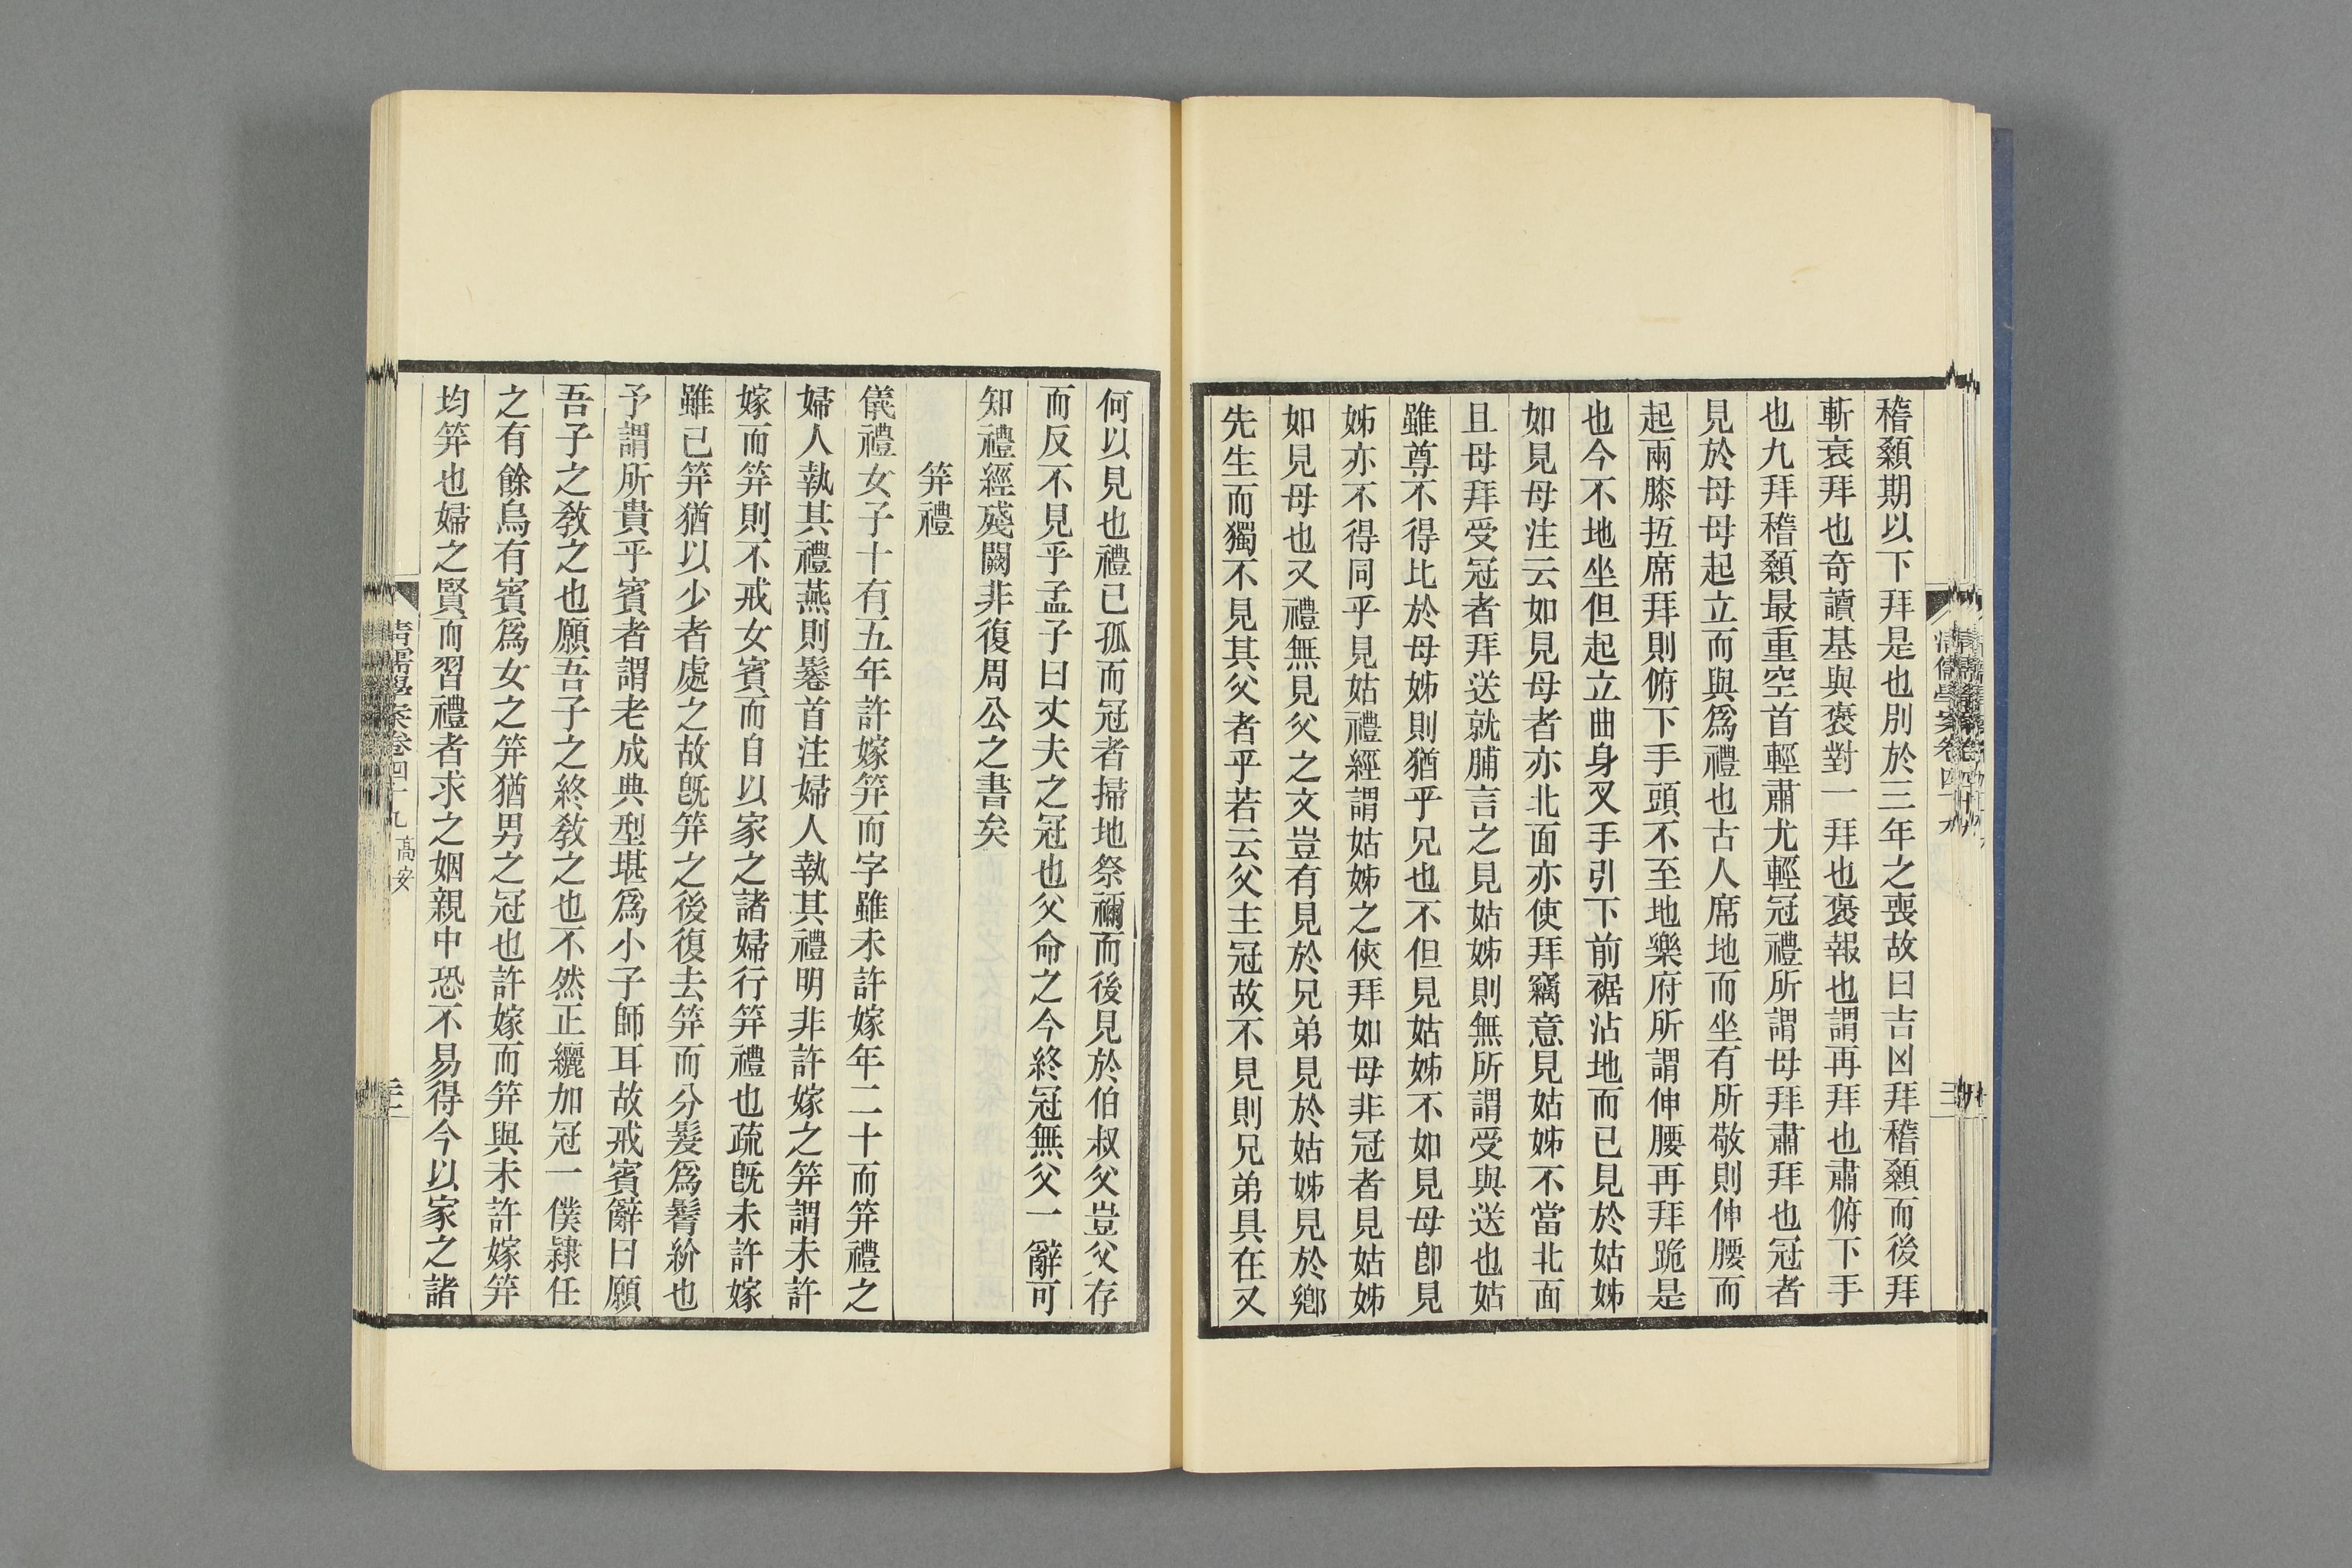 稽顙期以下拜是也別於三年之喪故曰吉凶拜稽顙而後拜
斬衰拜也奇讀基與褒對一拜也褒報也謂再拜也肅俯下手
也九拜稽顙最重空首輕肅尤輕冠禮所謂母拜肅拜也冠者
見於母母起立而與爲禮也古人席地而坐有所敬則伸腰而
起兩膝抂席拜則俯下手頭不至地樂府所謂伸腰再拜跪是
也今不地坐但起立曲身叉手引下前裾沾地而已見於姑姊
如見母注云如見母者亦北面亦使拜竊意見姑姊不當北面
且母拜受冠者拜送就脯言之見姑姊則無所謂受與送也姑
雖尊不得比於母姊則猶乎兄也不但見姑姊不如見母卽見
姊亦不得同乎見姑禮經謂姑姊之俠拜如母非冠者見姑姊
如見母也又禮無見父之文豈有見於兄弟見於姑姊見於鄕
先生而獨不見其父者乎若云父主冠故不見則兄弟具在又
何以見也禮已孤而冠者掃地祭禰而後見於伯叔父豈父存
而反不見乎孟子曰丈夫之冠也父命之今終冠無父一辭可
知禮經殘闕非復周公之書矣
笄禮
儀禮女子十有五年許嫁笄而字雖未許嫁年二十而笄禮之
婦人執其禮燕則鬈首注婦人執其禮明非許嫁之笄謂未許
嫁而笄則不戒女賓而自以家之諸婦行笄禮也疏旣未許嫁
雖已笄猶以少者處之故旣笄之後復去笄而分髮爲鬌紒也
予謂所貴乎賓者謂老成典型堪爲小子師耳故戒賓辭曰願
吾子之敎之也願吾子之終敎之也不然正纚加冠一僕隷任
之有餘烏有賓爲女之笄猶男之冠也許嫁而笄與未許嫁笄
均笄也婦之賢而習禮者求之姻親中恐不易得今以家之諸
清儒學案卷四十九 高安